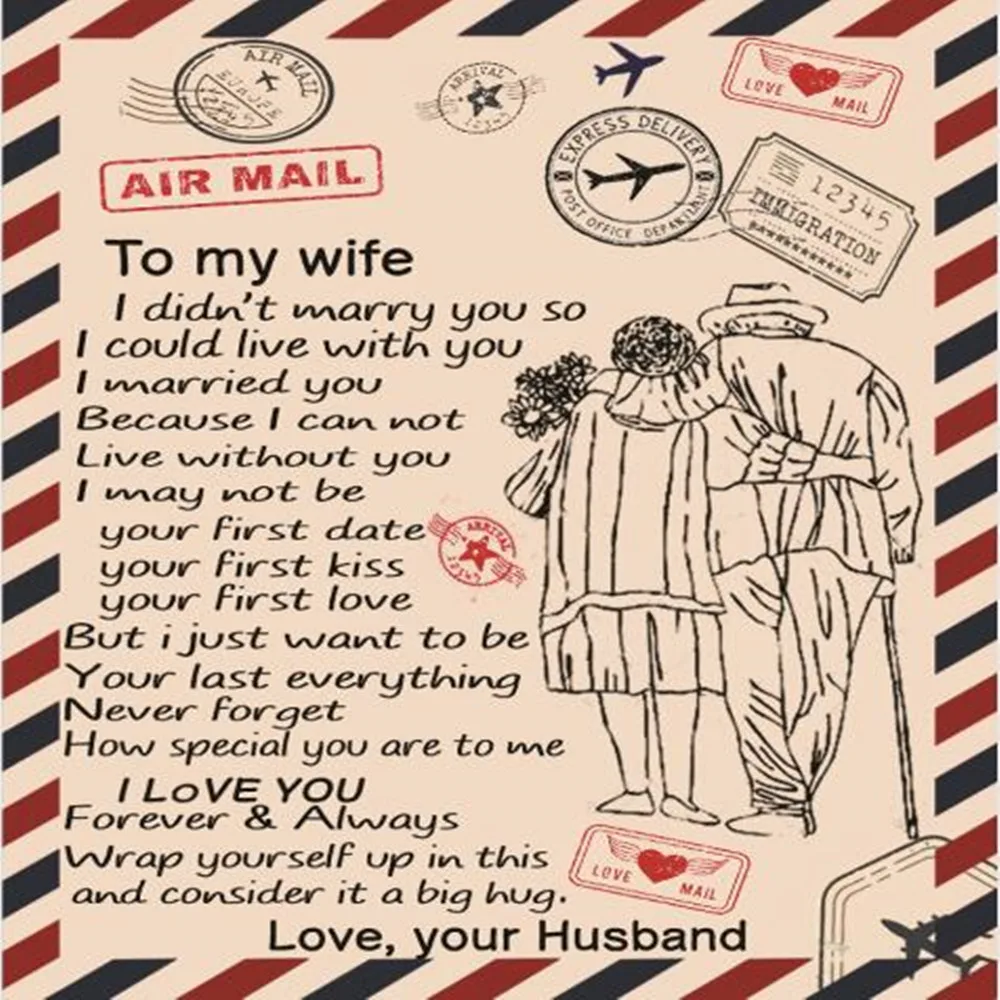 AIR MAIL
ARRIVAL
12345
LOVE MAIL
AIR MAIL
EXPRESS DELIVERY
POST OFFICE DEPARTMENT
12345
IMMIGRATION
To my wife
I didn't marry you so
I could live with you
I married you
Because I can not
Live without you
I may not be
your first date
your first kiss
your first love
ARRIVAL
12345
But i just want to be
Your last everything
Never forget
How special you are to me
I LoVE YOU
Forever & Always
Wrap yourself up in this
and consider it a big hug.
LOVE MAIL
Love, your Husband